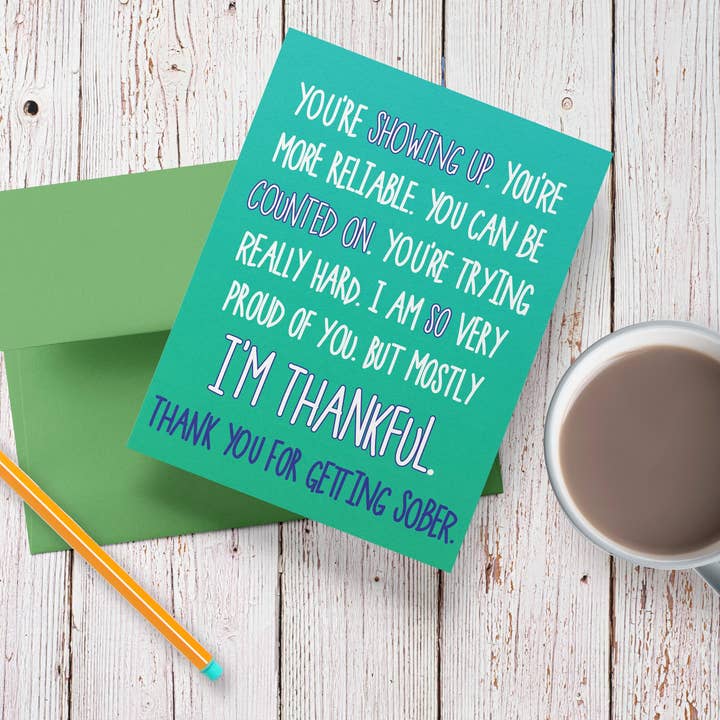 YOU'RE SHOWING UP. YOU'RE
MORE RELIABLE. YOU CAN BE
COUNTED ON. YOU'RE TRYING
REALLY HARD. I AM SO VERY
PROUD OF YOU. BUT MOSTLY
I'M THANKFUL.
THANK YOU FOR GETTING SOBER.